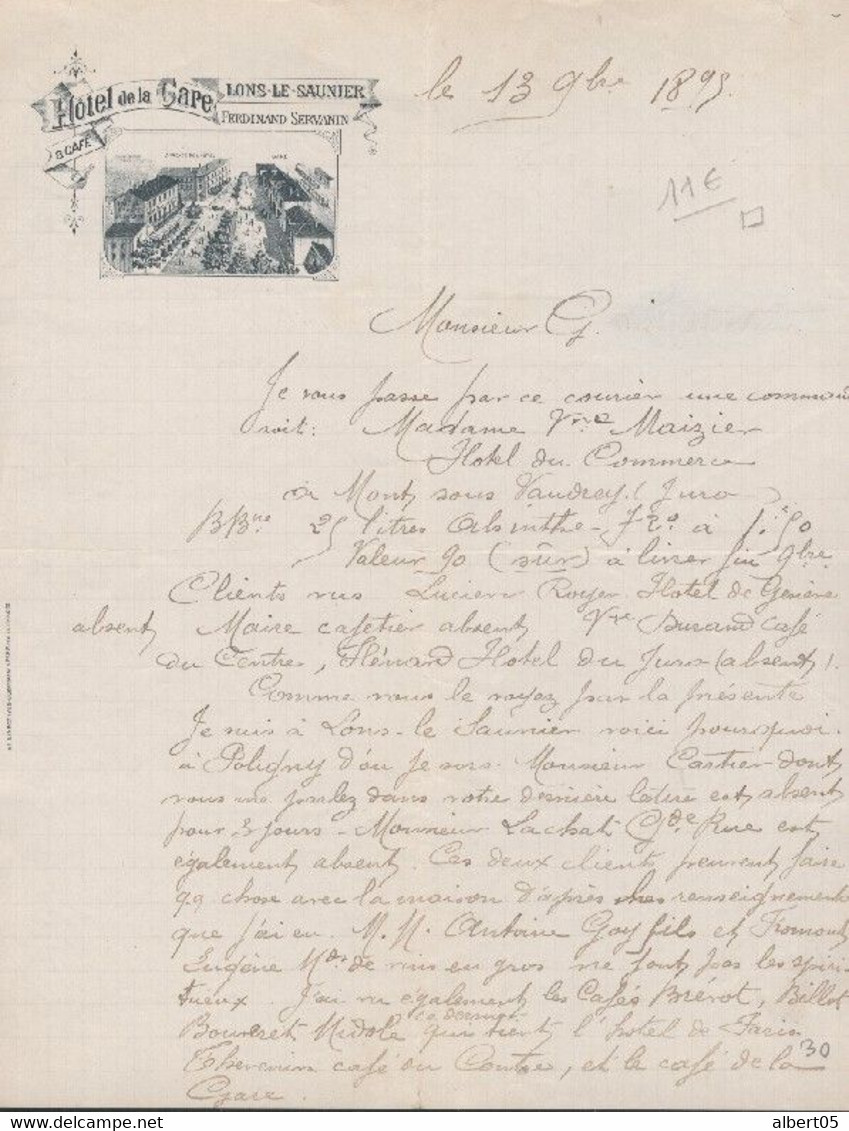 Hôtel de la Gare
& CAFÉ
LONS-LE-SAUNIER
FERDINAND SERVANIN
le 13 9bre 1895
11€
Monsieur G.
Je vous passe par ce courier une comman
soit: Madame Vve Maizier
Hotel du Commerce
à Mont sous Vaudrey (Jura)
BBne 25 litres Absinthe 72° à 1f50
Valeur 90 (sûr) à livrer fin 9bre
Clients vus Lucien Royer Hotel de Genève
absent Maire cafetier absent Vve Durand café
du Centre, Hénard Hotel du Jura (absent).
Comme vous le voyez par la présente
Je suis à Lons-le Saunier voici pourquoi.
à Poligny d'ou je sors. Monsieur Cartier dont
vous me parlez dans votre dernière lettre est absent
pour 3 jours - Monsieur Lachat Gde Rue est
également absent. Ces deux clients peuvent faire
qq chose avec la maison d'après les renseignements
que j'ai eu. M.M. Antoine Goy fils et Fromont
Eugène Mds de vins en gros ne font pas les spiri-
tueux. J'ai vu également les Cafés Brévot, Billot
Bouveret Midole ce dernier qui tient l'hotel de Paris
Thevenin café du Centre, et le café de la
Gare.
30
https://www.delcampe.net
albert05